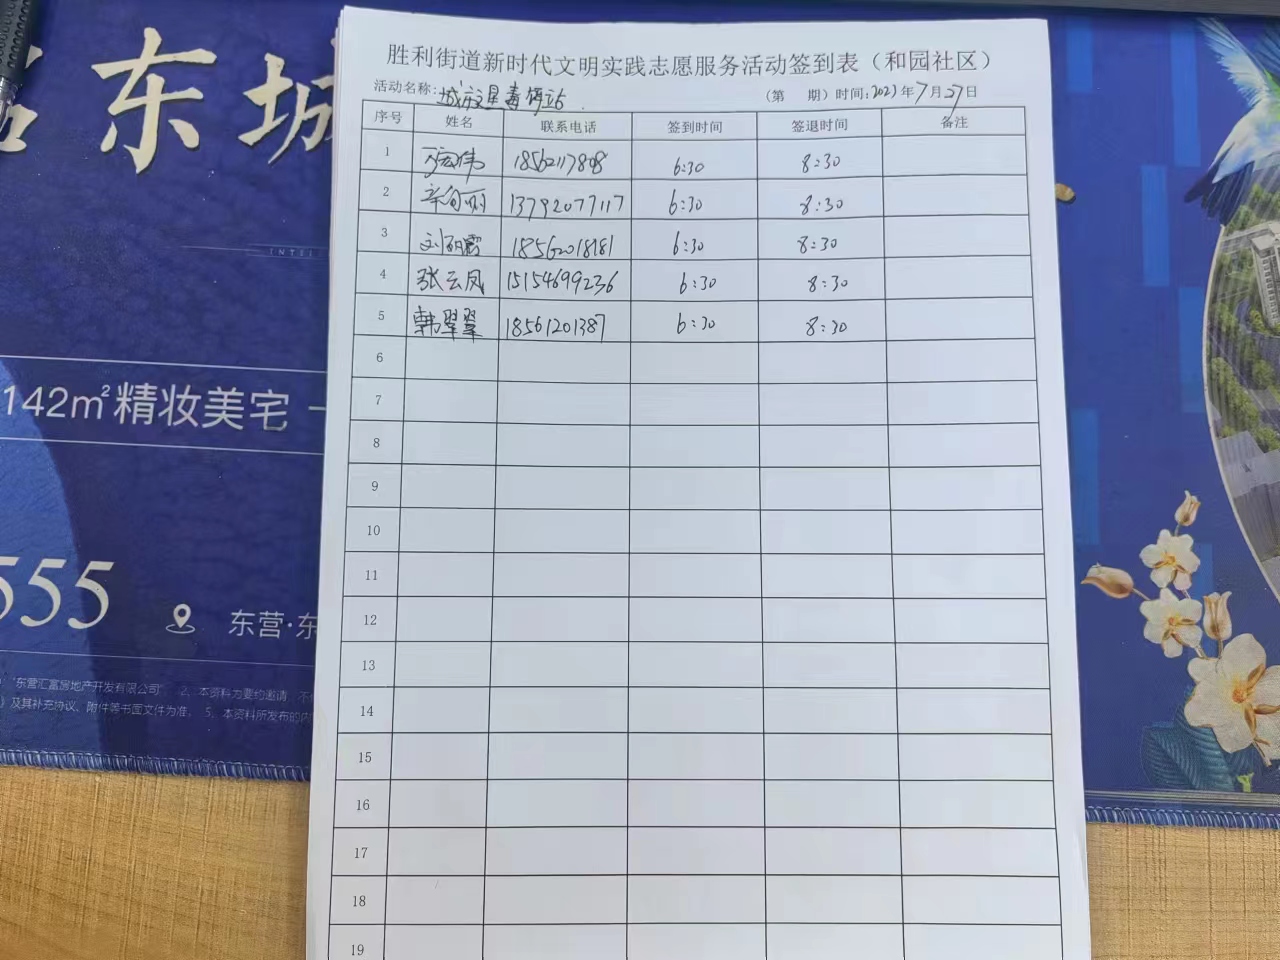 东城
INTEL
142㎡精妆美宅
555
东营·东
"东营汇富房地产开发有限公司" 2、本资料为要约邀请，不
）及其补充协议、附件等书面文件为准， 5、本资料所发布的内
胜利街道新时代文明实践志愿服务活动签到表（和园社区）
活动名称: （第 期）时间:2023年7月27日
序号 姓名 联系电话 签到时间 签退时间 备注
1 宏伟 18562117808 6:30 8:30
2 辛向丽 13792077117 6:30 8:30
3 刘 霞 18562018181 6:30 8:30
4 张云凤 15154699236 6:30 8:30
5 韩翠翠 18561201387 6:30 8:30
6
7
8
9
10
11
12
13
14
15
16
17
18
19